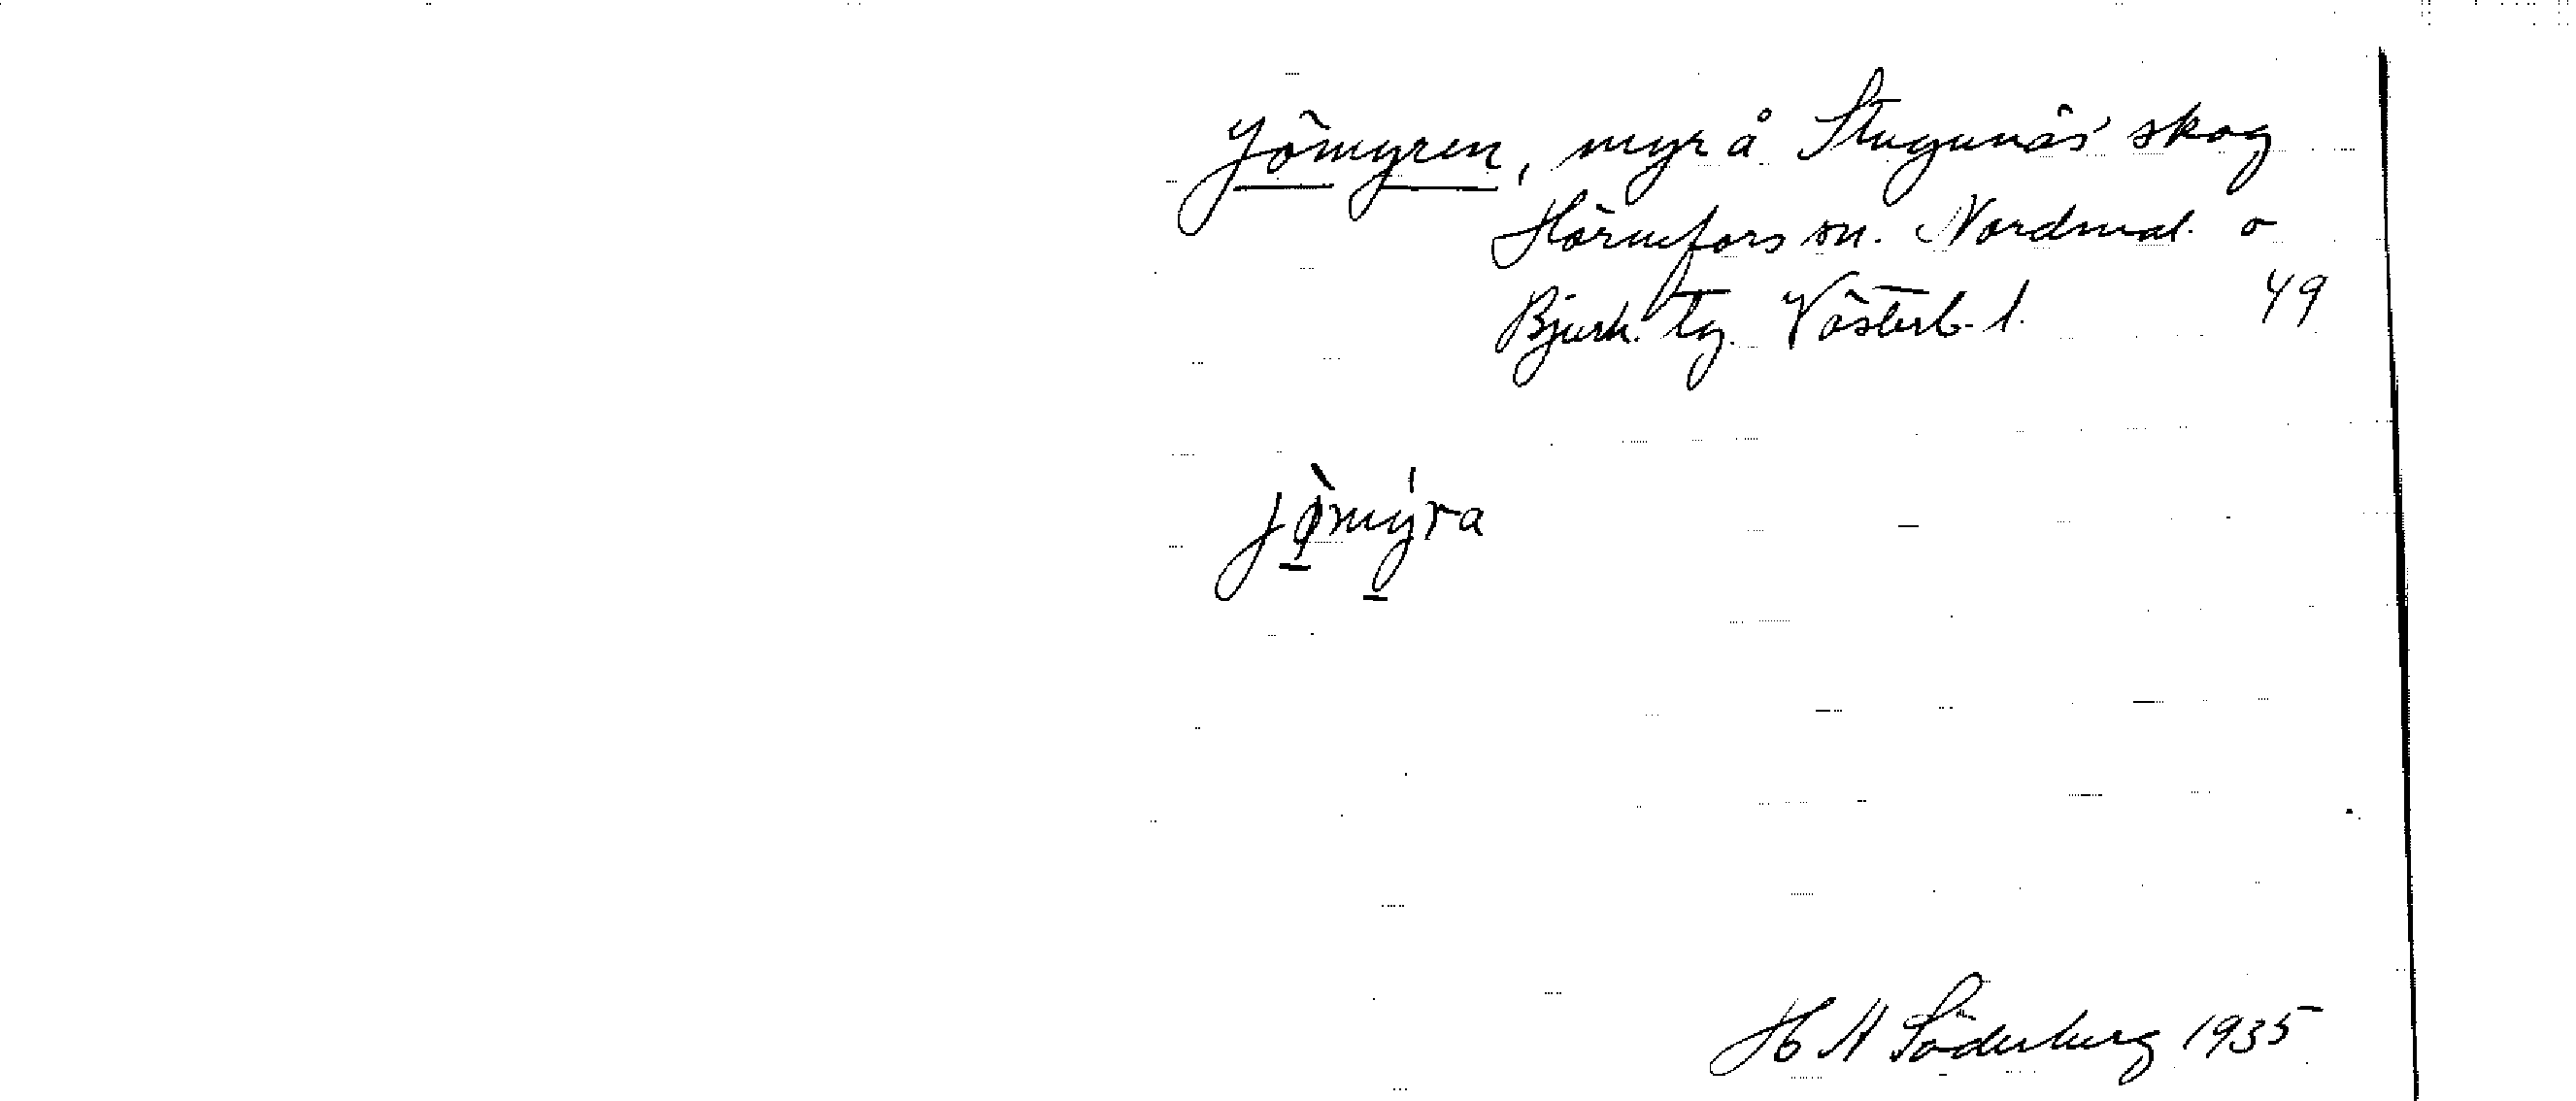 Jömyren, myr å Stugunäs' skog
Hörnefors sn. Nordmal. o
Bjurh. tg. Västerb. l. 49
jömyra
H N Söderberg 1935